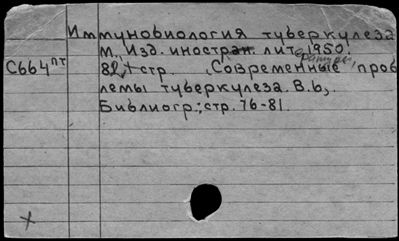 Иммунобиология туберкулеза
М., Изд. иностран. лит-ературы, 1950.
С664пт
82,+ стр. , Современные проб
лемы туберкулеза. В.6,
Библиогр.: стр. 76-81.
х